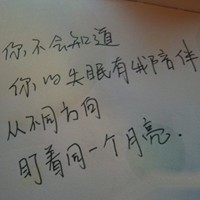 你不会知道
你的失眠有我陪伴
从不同方向
盯着同一个月亮.